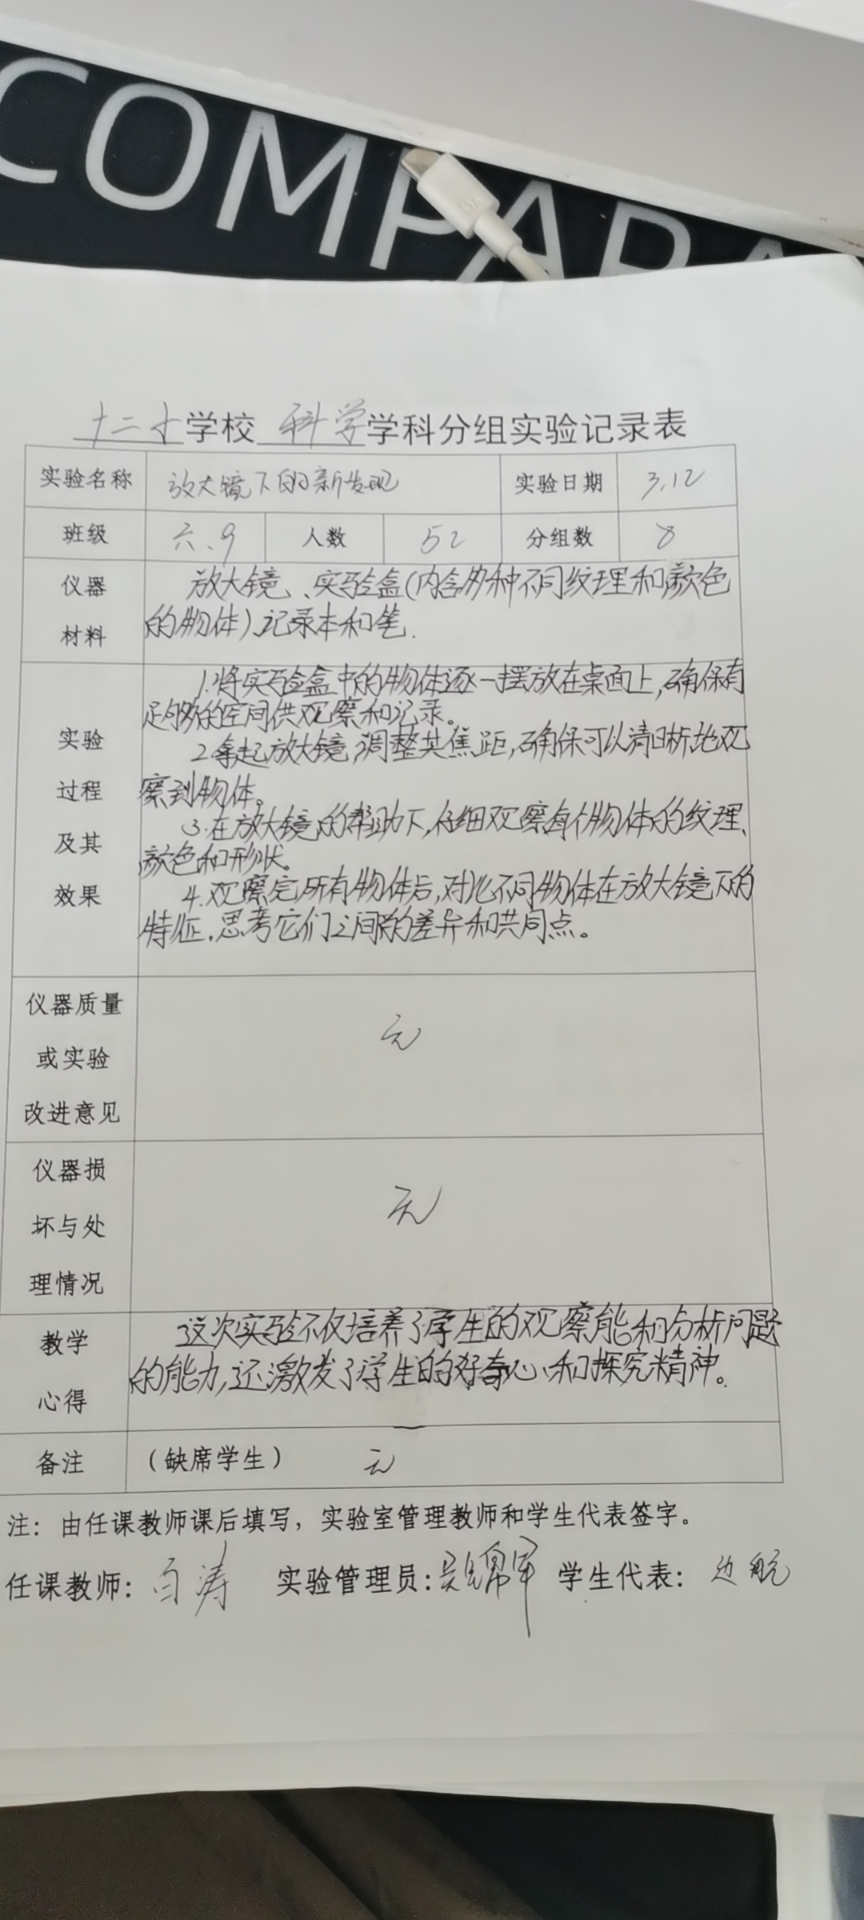 COMPARA
十二小学校 科学学科分组实验记录表
实验名称 放大镜下的新发现 实验日期 3.12
班级 六.9 人数 52 分组数 8
仪器材料
放大镜、实验盒(内含多种不同纹理和颜色
的物体)记录本和笔.
实验过程及其效果
1.将实验盒中的物体逐一摆放在桌面上,确保有
足够的空间供观察和记录。
2.拿起放大镜,调整其焦距,确保可以清晰地观
察到物体。
3.在放大镜的帮助下,仔细观察每个物体的纹理、
颜色和形状。
4.观察完所有物体后,对比不同物体在放大镜下的
特征.思考它们之间的差异和共同点。
仪器质量或实验改进意见
无
仪器损坏与处理情况
无
教学心得
这次实验不仅培养了学生的观察能和分析问题
的能力,还激发了学生的好奇心和探究精神。
备注 (缺席学生) 无
注:由任课教师课后填写,实验室管理教师和学生代表签字。
任课教师:白涛 实验管理员:吴锦军 学生代表:边航